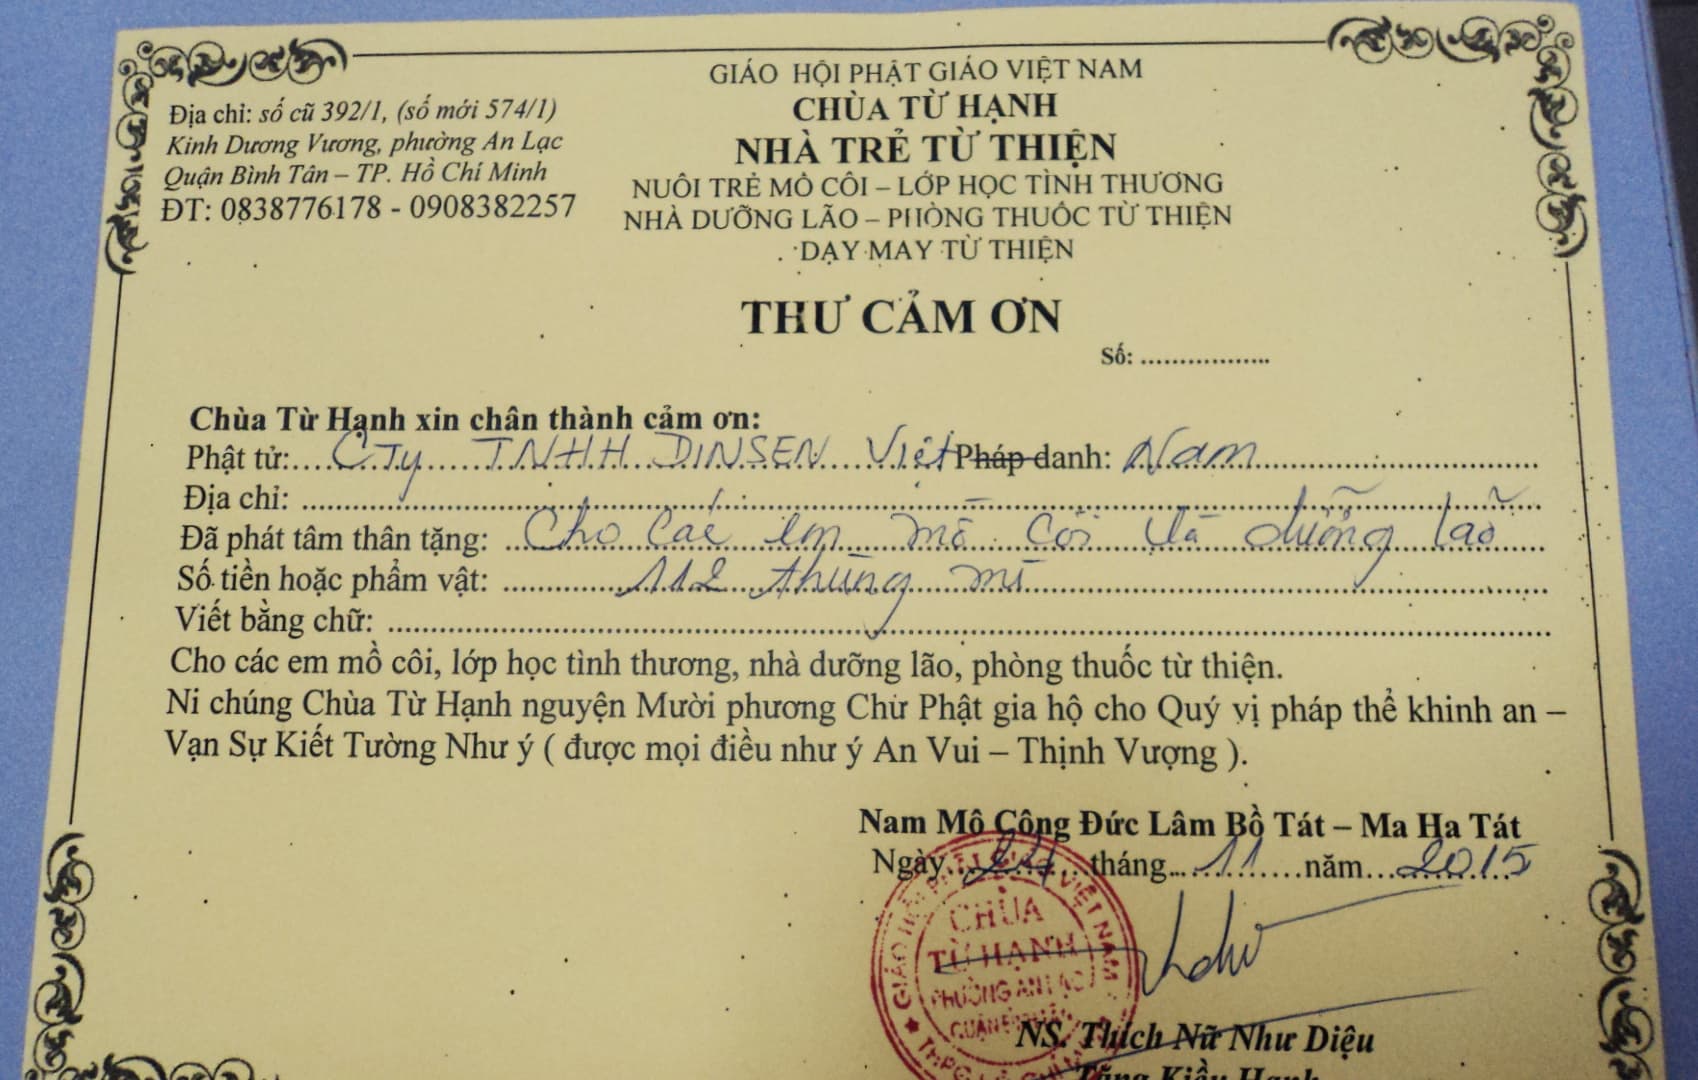 GIÁO HỘI PHẬT GIÁO VIỆT NAM
CHÙA TỪ HẠNH
NHÀ TRẺ TỪ THIỆN
NUÔI TRẺ MÔ CÔI – LỚP HỌC TÌNH THƯƠNG
NHÀ DƯỠNG LÃO – PHÒNG THUỐC TỪ THIỆN
DẠY MAY TỪ THIỆN
Địa chỉ: số cũ 392/1, (số mới 574/1)
Kinh Dương Vương, phường An Lạc
Quận Bình Tân – TP. Hồ Chí Minh
ĐT: 0838776178 - 0908382257
THƯ CẢM ƠN
Số: ..................
Chùa Từ Hạnh xin chân thành cảm ơn:
Phật tử: CTy TNHH DINSEN Việt Pháp danh: Nam
Địa chỉ: ..................
Đã phát tâm thân tặng: Cho các em mồ côi và dưỡng lão
Số tiền hoặc phẩm vật: 112 thùng mì
Viết bằng chữ: ..................
Cho các em mồ côi, lớp học tình thương, nhà dưỡng lão, phòng thuốc từ thiện.
Ni chúng Chùa Từ Hạnh nguyện Mười phương Chư Phật gia hộ cho Quý vị pháp thể khinh an –
Vạn Sự Kiết Tường Như ý ( được mọi điều như ý An Vui – Thịnh Vượng ).
Nam Mô Công Đức Lâm Bồ Tát – Ma Ha Tát
Ngày 24 tháng 11 năm 2015
GIÁO HỘI PHẬT GIÁO VIỆT NAM
CHÙA
TỪ HẠNH
PHƯỜNG AN LẠC
NS. Thích Nữ Như Diệu
Tăng Kiều Hạnh